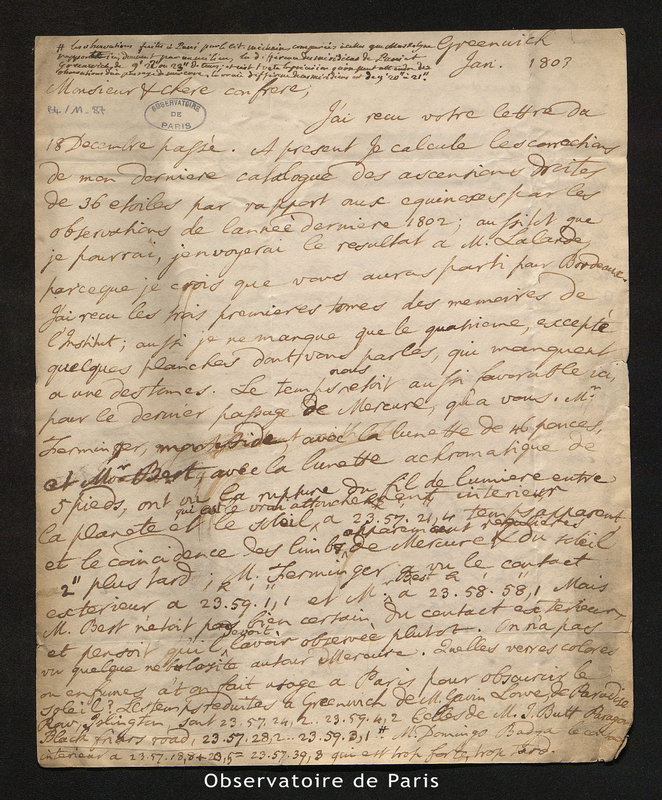 Greenwich
Jan. 1803
# les observations faites à Paris par le cit. méchain comparées à celles que Maskelyne
Monsieur & chere confrere,
B4/M-87
OBSERVATOIRE
DE
PARIS
J'ai recu votre lettre du
18 Decembre passé. A present Je calcule les corrections
de mon derniere catalogue des ascensions droites
de 36 etoiles par rapport aux equinoxes par les
observations de l'année derniere 1802; aussitot que
je pourrai, j'envoyerai le resultat a M. Lalande,
parceque je crois que vous aurus parti par Bordeaux.
J'ai recu les trois premieres tomes des memoires de
l'Institut; aussi je ne manque que le quatrieme, excepté
quelques planches dont vous parles, qui manquent
a une des tomes. Le temps nous etoit aussi favorable ici,
pour le dernier passage de Mercure, qu'a vous. Mr.
Ferminger, avec la lunette de 46 pouces,
et Mr. Best, avec la lunette achromatique de
5 pieds, ont vu la rupture du fil de lumiere entre
la planete et le soleil, qui est le vrai attouchement interieur
a 23.57.21,4 temps apparent
et le coincidence des limbs apparemment
de Mercure & du soleil
2" plus tard; M. Ferminger a vu le contact
exterieur a 23.59.1,1 et M. Best a 23.58.58,1 Mais
M. Best n'etoit pas bien certain du contact exterieur,
et pensoit qu'il devoit l'avoir observée plutot. On n'a pas
vu quelque nebulosité autour Mercure. Quelles verres colores
ou enfumes a't on fait usage a Paris pour obscurir le
soleil? Les temps reduites a Greenwich de M. Gavin Lowe de Paradise
Row, Islington, sont 23.57.24,2.. 23.59.4,2 Celles de M. J. Butt Paragon
Black friars road, 23.57.28,2.. 23.59.8,1 # M. Domingo Badia le contact
interieur a 23.57.18,8+23,5= 23.57.39,8 qui est trop forte, trop tard.
Observatoire de Paris